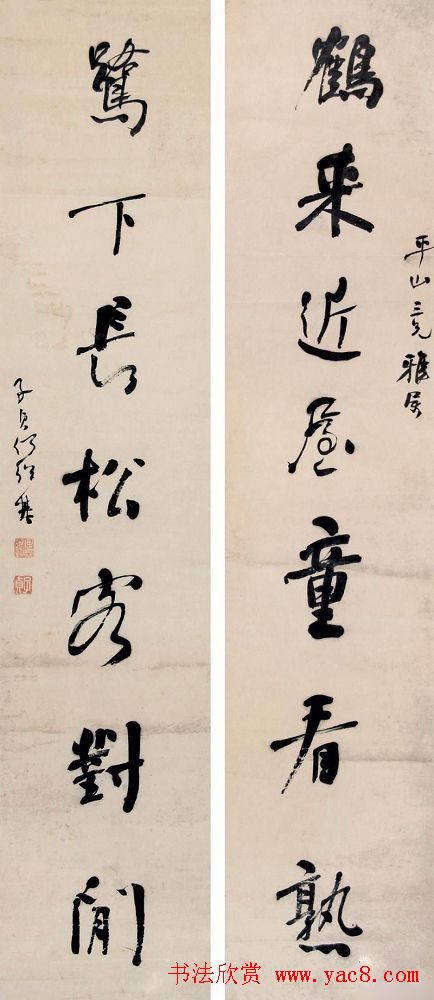 平山三兄雅属
鹤来近屋童看熟
鹭下長松客對閒
子貞何紹基
书法欣赏 www.yac8.com